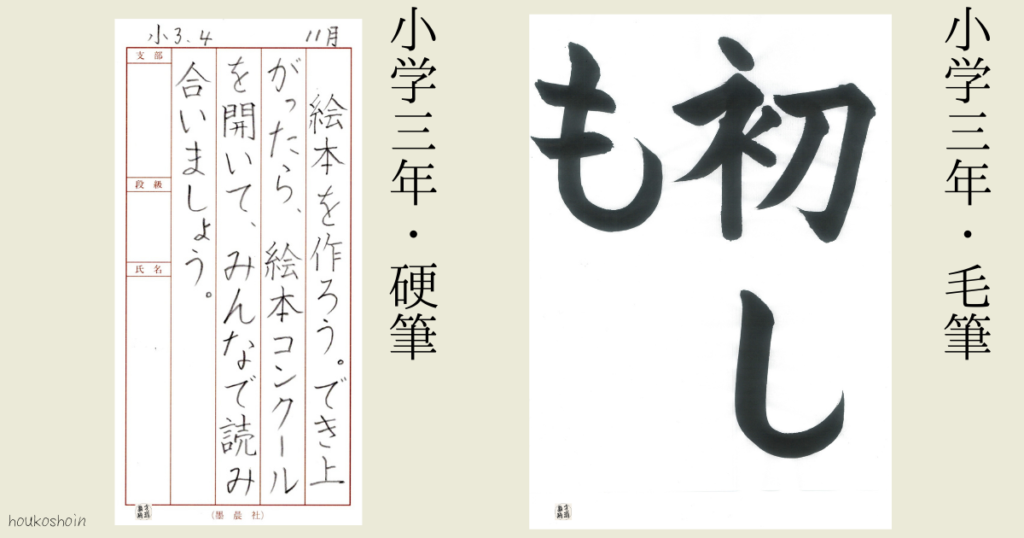 小学三年・毛筆
初し
も
小学三年・硬筆
小3.4
11月
絵本を作ろう。でき上
がったら、絵本コンクール
を開いて、みんなで読み
合いましょう。
支部
段級
氏名
(墨晨社)
houkoshoin